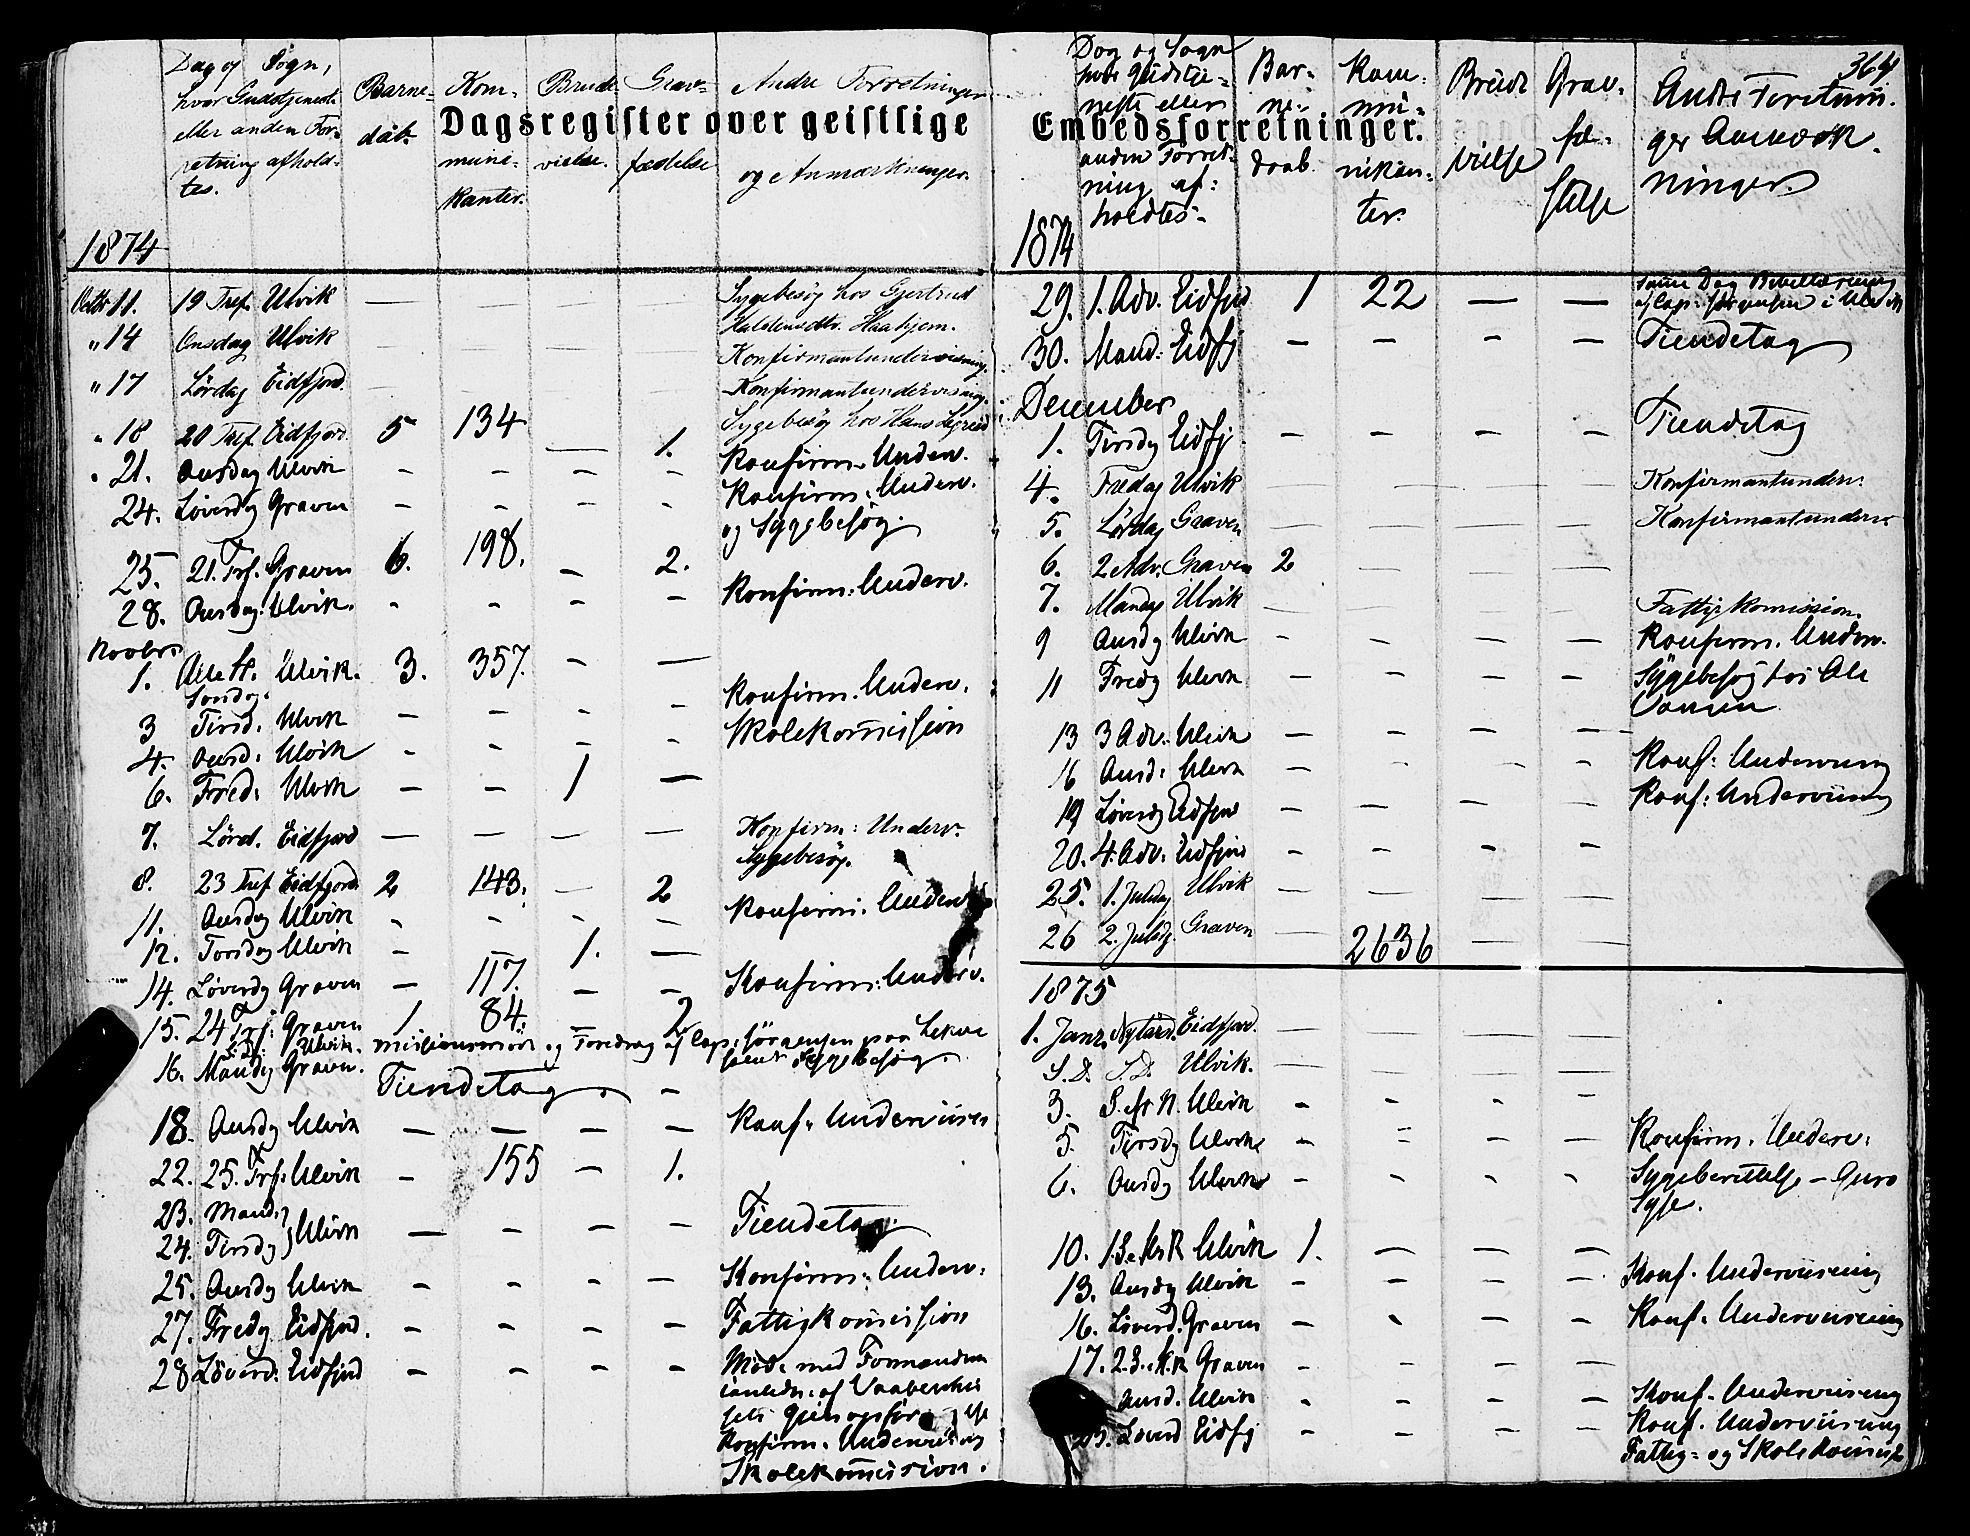 Dagsregister over geistlige
Dag og Sogn,
hvor Gudstjeneste
eller anden For-
retning afhold-
tes.
Barne-
daab.
Kom-
muni-
kanter.
Brude-
vielse.
Grav-
fæstelse
Andre Forretninger
og Anmærkninger.
1874
Octbr 11. 19 Tref. Ulvik — — — — Sygebesøg hos Gjertrud
Haakjem.
" 14 Onsdag Ulvik — — — — Konfirmantundervisning.
" 17 Lørdag Eidfjord. — — — — Konfirmantundervisning.
" 18 20 Tref. Eidfjord 5 134 — 1. Sygebesøg hos Hans
" 21. Onsdag Ulvik - - - - Konfirm. Underv.
24. Løverdg Graven - - - - Konfirm: Underv.
og Sygebesøg.
25. 21. Trf. Graven 6. 198. - 2.
28. Onsdag. Ulvik. - - - - Konfirm: Underv.
Novbr
1. Alle H. Ulvik. 3. 357. - —
Søndag.
3 Tirsd. Ulvik - - - - Konfirm. Underv.
4. Onsd. Ulvik - - - - Skolekommission
6. Fred. Ulvik - - 1 —
7. Lörd. Eidfjord — — — — Konfirm: Underv.
Sygebesøg.
8. 23 Tref Eidfjord. 2 143. — 2
11. Onsdag Ulvik - - - - Konfirm: Underv.
12. Torsdag Ulvik - 1. —
14. Løverdg Graven - 117. - - Konfirm: Underv.
15. 24 Trf: Graven 1 84. - 2
S.D. Ulvik. og Foredrag af Cap: Jørgensen paa Lekve
samt Sygebesøg
16. Mandg Graven. Tiendetag -
18. Onsdg Ulvik — — — — Konf. Underviisn
22. 25. Trf. Ulvik - 155 - 1.
23. Mandg
24. Tirsdg Ulvik — - - - Tiendetag
25. Onsdg Ulvik - - - — Konfirm: Underv.
27. Fredg Eidfjord. - - - — Fattigkommission
28 Løverd. Eidfjord - - - - Møde med Formændene
Konfirm. Underviisng
Skolekommission.
364
Embedsforretninger.
Dag og Sogn
hvor Gudstje-
neste eller
anden Forret-
ning af-
holdtes-
Bar-
ne-
daab.
Kom-
mu-
nikan-
ter.
Brude
vielse
Grav-
fæ-
stelse
Andre Forretnin-
ger Anmærk-
ninger.
1874
29. 1. Adv. Eidfjord 1 22 — — samme Dag Bibellæsning
af Cap: Jørgensen i Ulvik
30. Mand. Eidfj - - - - Tiendetag
December
1. Tirsdg Eidfj - - - - Tiendetag
4. Fredag Ulvik — — — — Konfirmantunderv.
5. Lørdag Graven — — — — Konfirmantunderv.
6. 2 Adv. Graven 2 — — —
7. Mandag Ulvik — — — — Fattigkomission
9 Onsdg Ulvik - - - - Konfirm. Underv.
11 Fredg Ulvik - - - - Sygebesøg hos Ole
13 3 Adv. Ulvik - - - -
16 Onsd. Ulvik - - - - Konf: Undervisning
19 Løverdg Eidfjord - - - - Konf: Underviisning
20. 4. Adv. Eidfjord - - - -
25. 1. Juledag Ulvik — — — —
26 2. Juledg. Graven — 2636 — —
1875
1. Janr. Nytårsd. Eidfjord. — — — —
S.D. S.D. Ulvik. — — — —
3. S. eft N. Ulvik - - - -
5. Tirsdg Ulvik - - - - Konfirm. Underv.
6. Onsdg Ulvik - - - - Sygeberettelse — Guro
Syse.
10. 1 S. e. H3K Ulvik 1. — — —
13. Onsdg Ulvik - - - - Konf. Underviisning
16. Løverd. Graven - - - - Konf. Underviisning
17. 2. S. e. H.3K Graven - - - -
Onsd. Ulvik - - - - Konf. Underviisning
Løverd Eidfj - - - - Konf. Underviisning
Fattig- og Skolekommiss